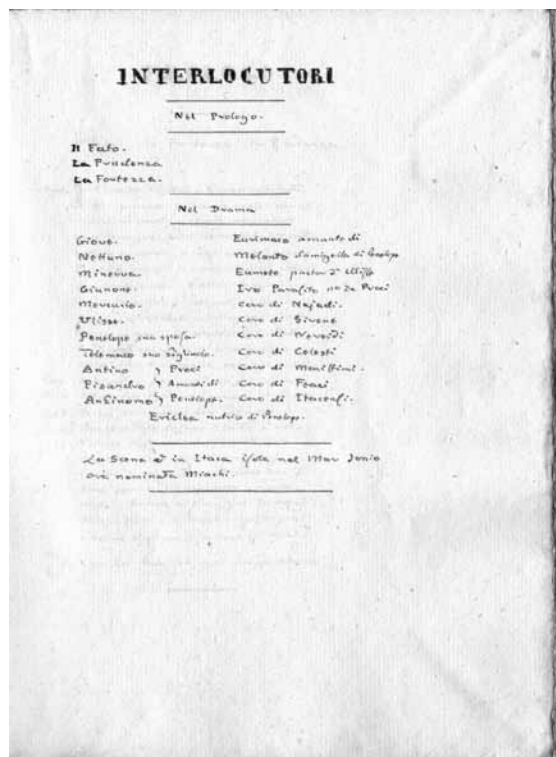 INTERLOCUTORI
Nel Prologo.
Il Fato.
La Prudenza
La Fortezza.
Nel Drama
Giove.
Nettuno.
Minerva.
Giunone.
Mercurio.
Ulisse.
Penelope sua sposa.
Telemaco suo figliuolo.
Antino } Proci
Pisandro } Amanti di
Anfinomo } Penelope.
Eurimaco amante di
Melanto damigella di Penelope
Eumete pastor d'Ulisse
Iro Parasito de Proci
Coro di Najadi.
Coro di Sirene
Coro di Nereidi
Coro di Celesti
Coro di Marittimi.
Coro di Feaci
Coro di Itacensi.
Ericlea nutrice di Penelope.
La Scena è in Itaca isola nel Mar Jonio
ora nominata